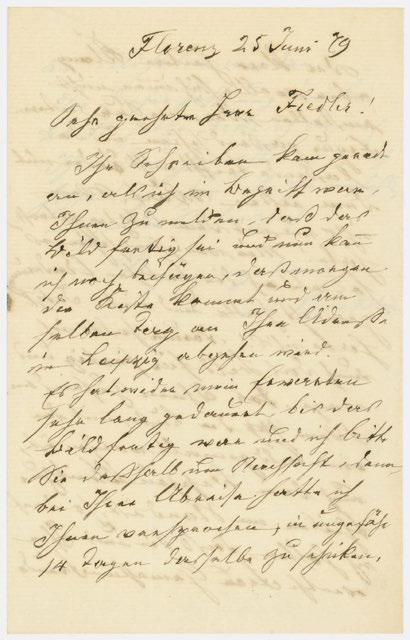 Florenz 25 Juni 79
Sehr geehrter Herr Fiedler!
Ihr Schreiben kam gerade
an, als ich im Begriff war,
Ihnen zu melden, daß das
Bild fertig sei und nun kann
ich noch beifügen, daß morgen
die Kiste kommt und am
selben Tag an Ihre Adresse
in Leipzig abgehen wird.
Es hat wider mein Erwarten
sehr lang gedauert bis das
Bild fertig war und ich bitte
Sie deshalb um Nachsicht, denn
bei Ihrer Abreise hatte ich
Ihnen versprochen, in ungefähr
14 Tagen dasselbe zu schicken,